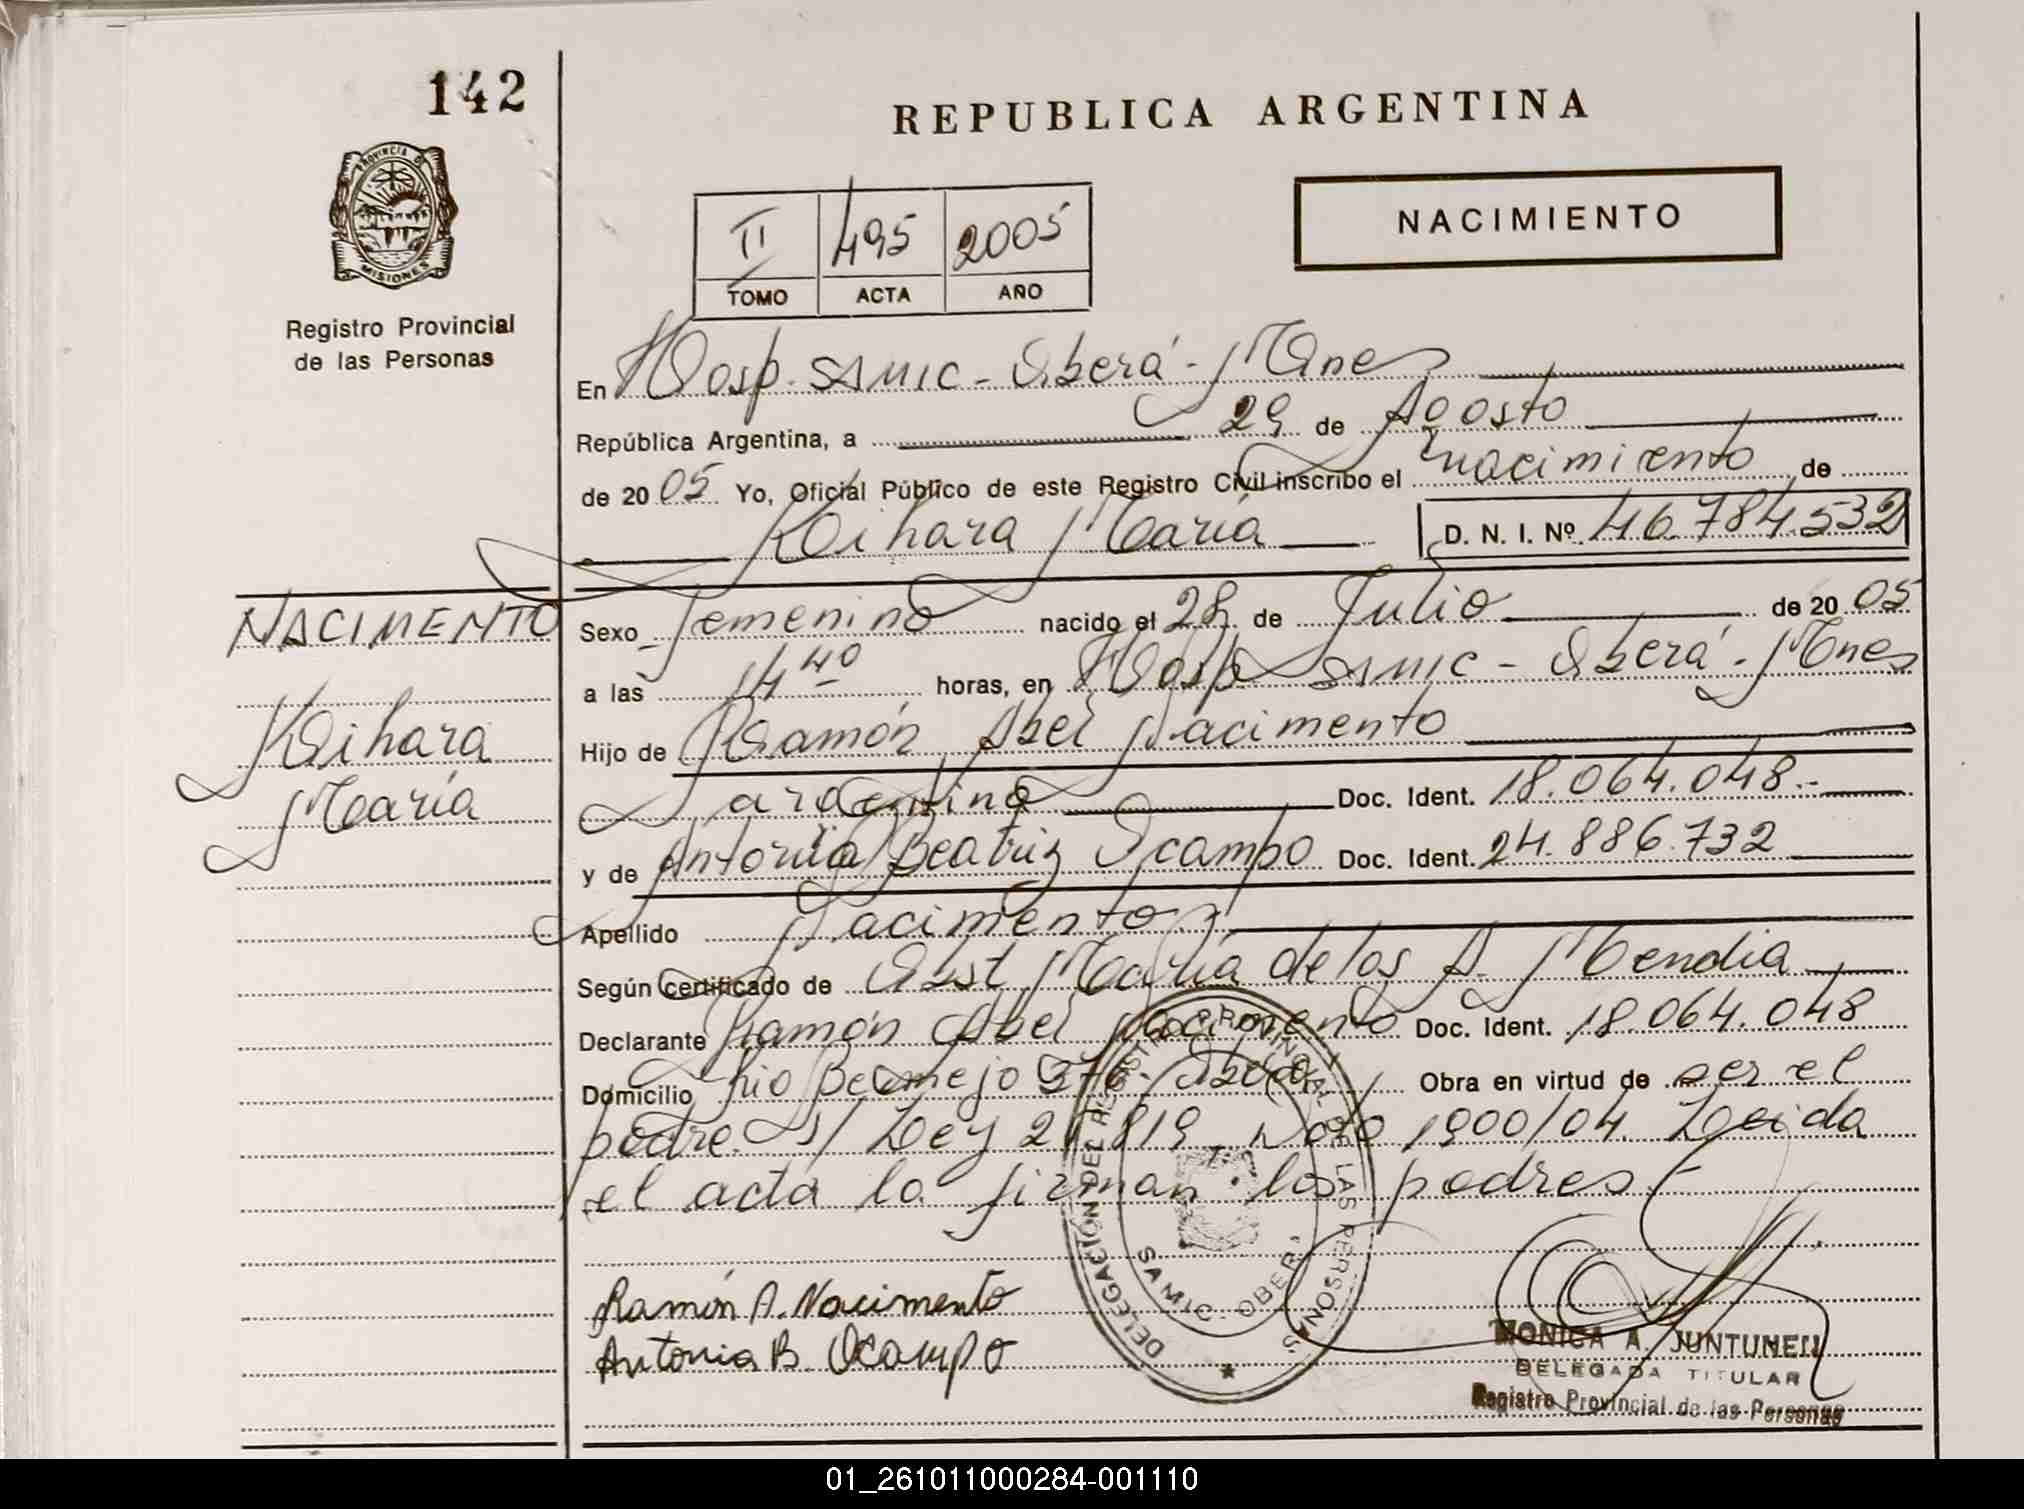 142
REPUBLICA ARGENTINA
PROVINCIA DE
MISIONES
Registro Provincial
de las Personas
II 495 2005
TOMO ACTA AÑO
NACIMIENTO
En Hosp. SAMIC - Oberá - Mnes
República Argentina, a 29 de Agosto
de 20 05 Yo, Oficial Público de este Registro Civil inscribo el nacimiento de
Kihara María D. N. I. Nº 46.784.532
NACIMENTO
Kihara
María
Sexo femenino nacido el 28 de Julio de 20 05
a las 14 40 horas, en Hosp SAMIC - Oberá - Mnes
Hijo de Ramón Abel Nacimento
argentino Doc. Ident. 18.064.048.-
y de Antonia Beatriz Ocampo Doc. Ident. 24.886.732
Apellido Nacimento
Según certificado de Obst María de los A. Mendia
Declarante Ramón Abel Nacimento Doc. Ident. 18.064.048
Domicilio Rio Bermejo 376 - Oberá Obra en virtud de ser el
padre s/ Ley 24 819, Dto 1900/04. Leida
el acta la firman los padres.-
Ramón A. Nacimento
Antonia B. Ocampo
DELEGACION DEL REGISTRO PROVINCIAL DE LAS PERSONAS
SAMIC - OBERA
MONICA A. JUNTUNEN
DELEGADA TITULAR
Registro Provincial de las Personas
01_261011000284-001110